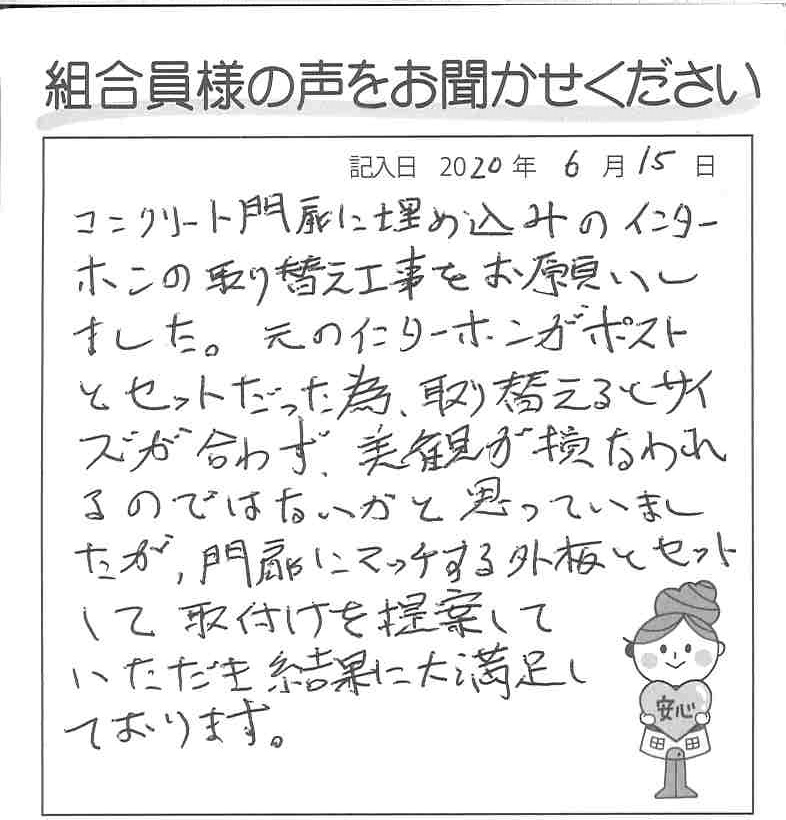 組合員様の声をお聞かせください
記入日 2020年 6月15日
コンクリート門扉に埋め込みのインター
ホンの取り替え工事をお願いし
ました。元のインターホンがポスト
とセットだった為、取り替えるとサイ
ズが合わず、美観が損なわれ
るのではないかと思っていまし
たが、門扉にマッチする外板とセット
して取付けを提案して
いただき結果に大満足し
ております。
安心